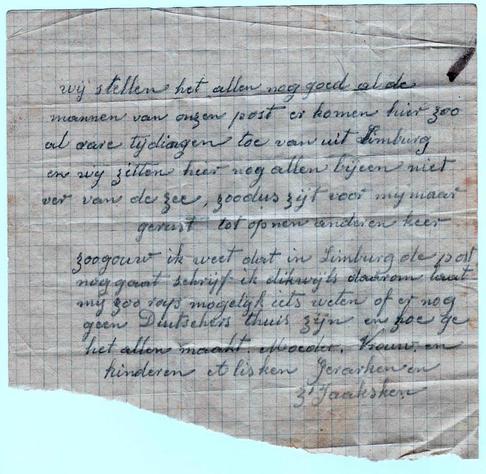 wij stellen het allen nog goed al de
mannen van onzen post er komen hier zoo
al rare tijdingen toe van uit Limburg
en wij zitten heer nog allen bijeen niet
ver van de zee, zoodus zijt voor mij maar
gerust tot op nen anderen keer
zoogouw ik weet dat in Limburg de post
nog gaat schrijf ik dikwijls daarom laat
mij zoo raps mogelijk iets weten of er nog
geen Duitschers thuis zijn en hoe ge
het allen maakt Moeder, Vrouw, en
kinderen Lisken en
Jaaksken